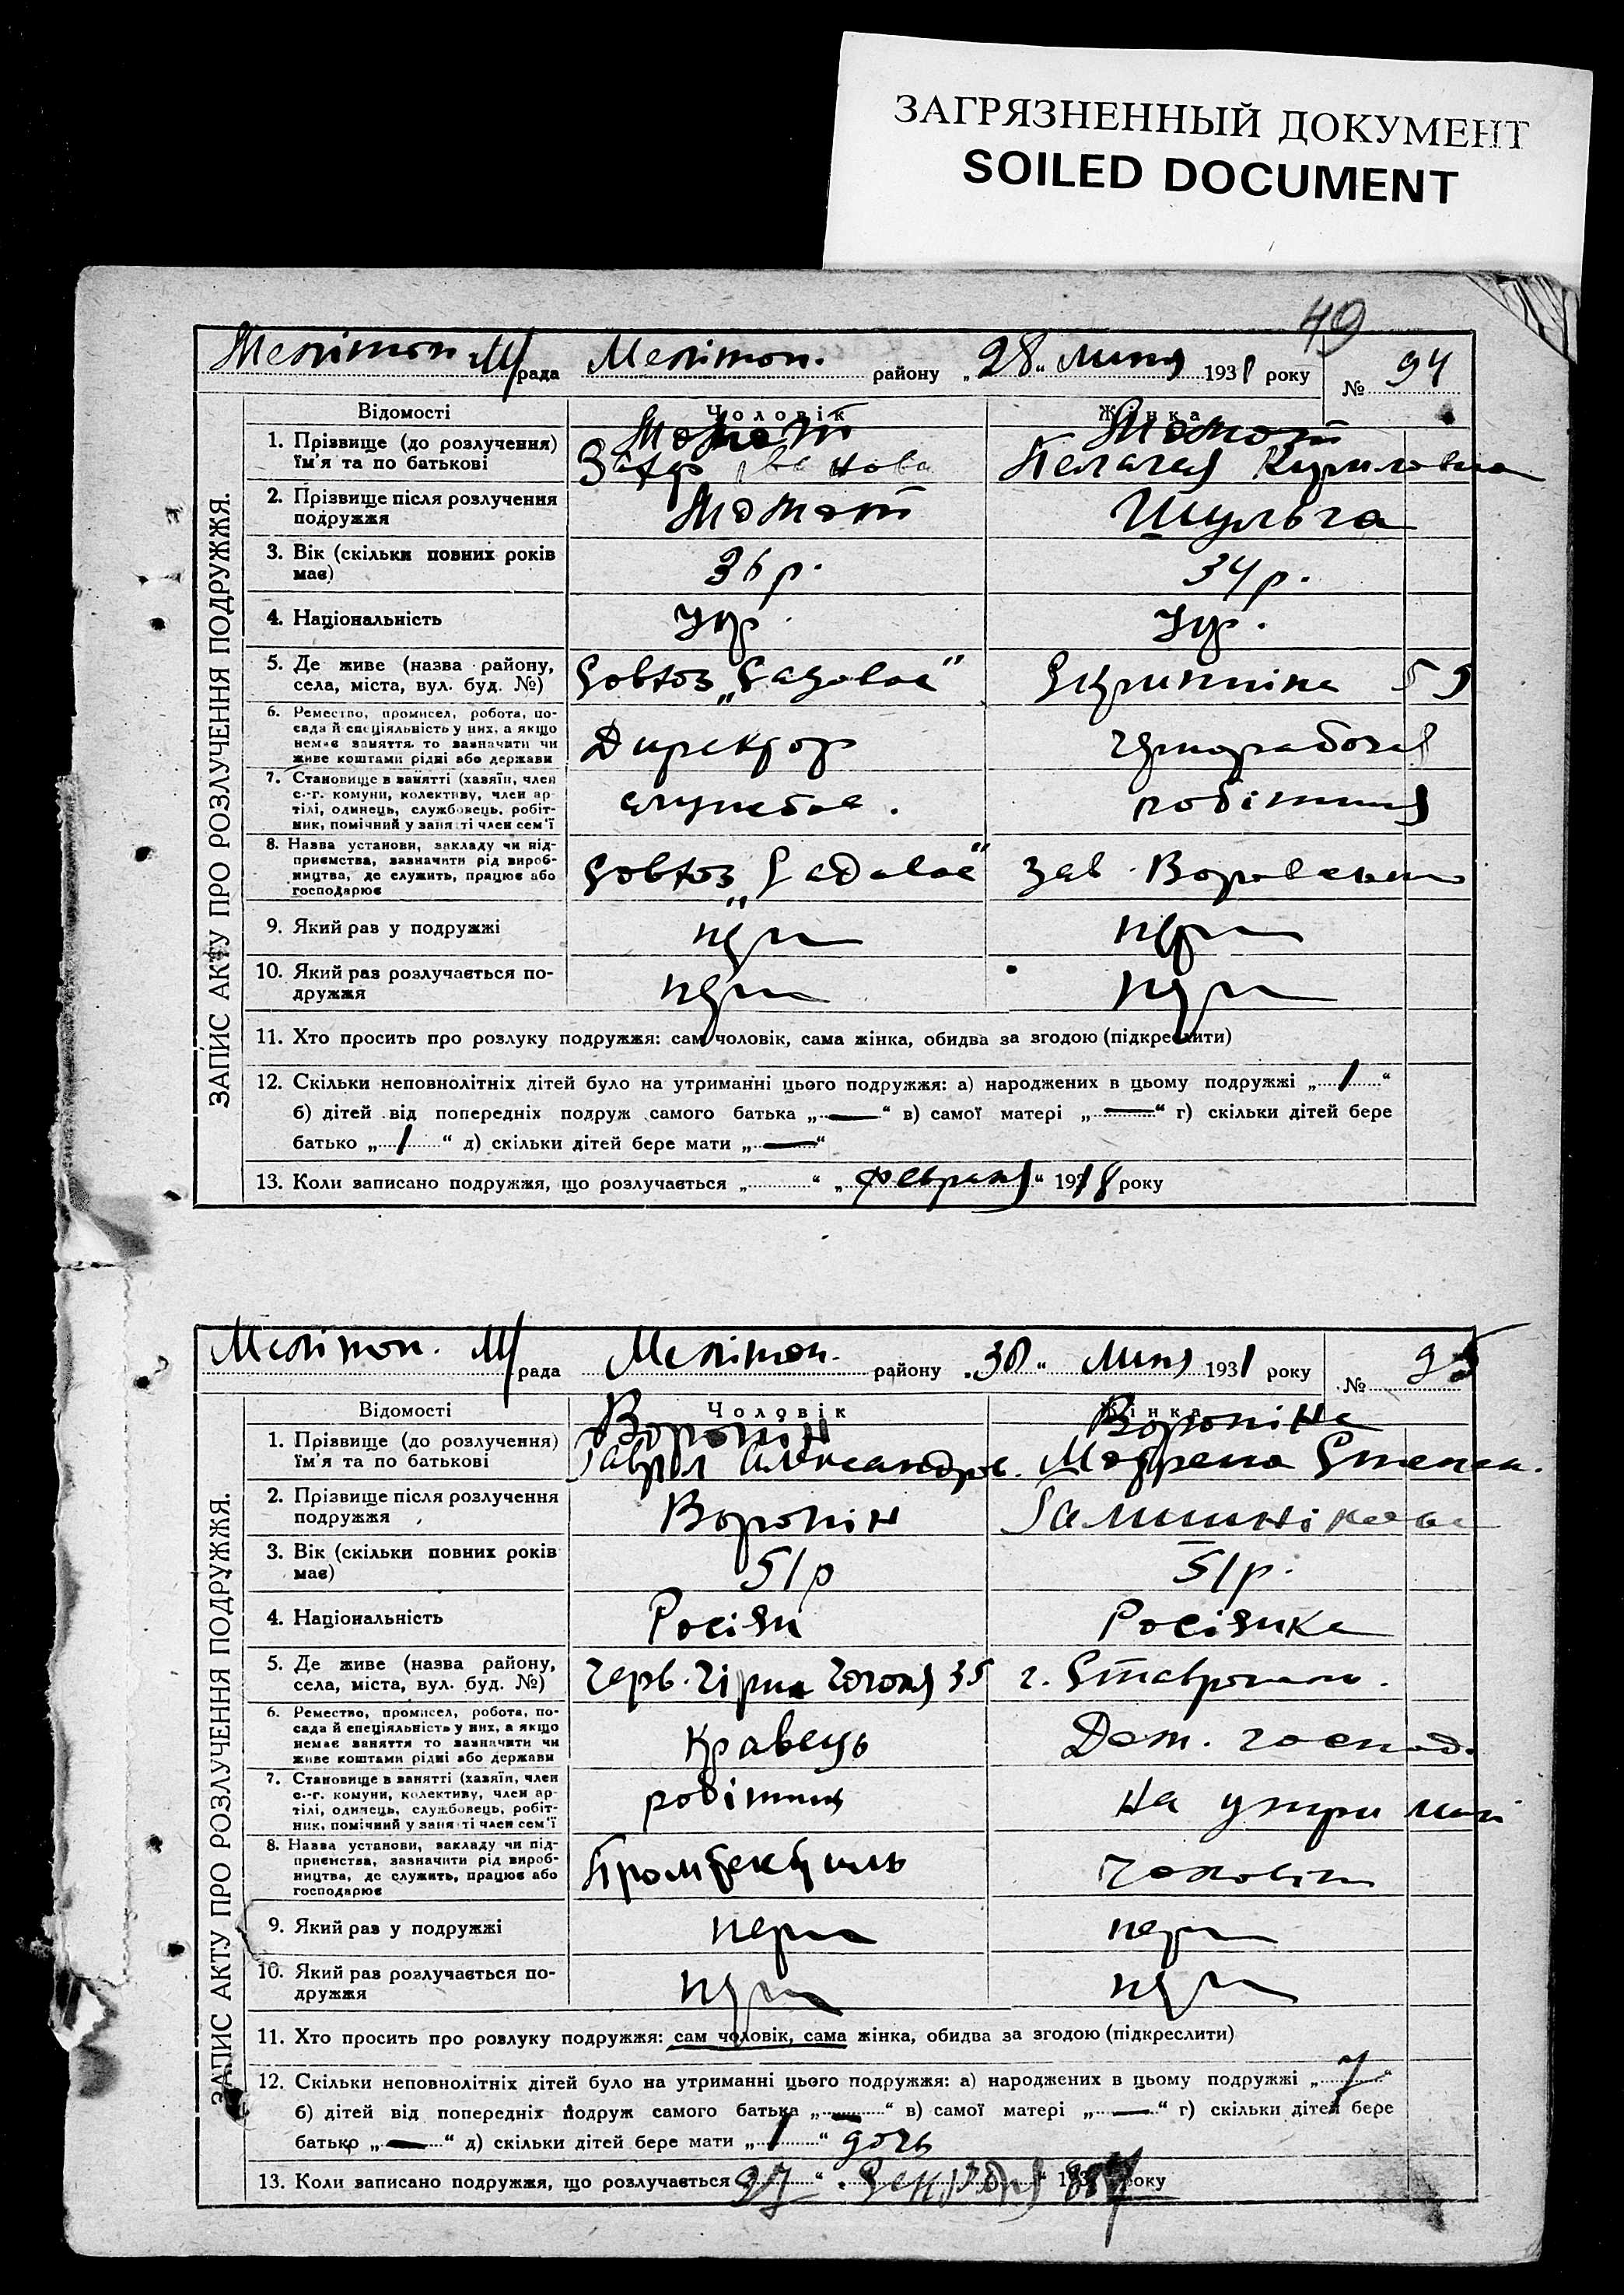 ЗАГРЯЗНЕННЫЙ ДОКУМЕНТ
SOILED DOCUMENT
49
Мелітоп. М/рада Мелітоп. району „28“ липня 1931 року № 94
ЗАПИС АКТУ ПРО РОЗЛУЧЕННЯ ПОДРУЖЖЯ.
Відомості Чоловік Жінка
1. Прізвище (до розлучення)
їм'я та по батькові
Захар Пелагея Кириловна
2. Прізвище після розлучення
подружжя
Шульга
3. Вік (скільки повних років
має)
36 р. 34 р.
4. Національність Укр. Укр.
5. Де живе (назва району,
села, міста, вул. буд. №)
Совхоз „Садовое“ Скрипніка 59
6. Ремество, промисел, робота, по-
сада й спеціяльність у них, а якщо
немає заняття то зазначити чи
живе коштами рідні або держави
Директор чорнорабочая
7. Становище в занятті (хазяїн, член
с.-г. комуни, колективу, член ар-
тілі, одинець, службовець, робіт-
ник, помічний у занятті член сем'ї
службов. робітниця
8. Назва установи, закладу чи під-
приємства, зазначити рід вироб-
ництва, де служить, працює або
господарює
Совхоз „Садовое“ Зав. Воровського
9. Який раз у подружжі перш перш
10. Який раз розлучається по-
дружжя
перш перш
11. Хто просить про розлуку подружжя: сам чоловік, сама жінка, обидва за згодою (підкреслити)
12. Скільки неповнолітніх дітей було на утриманні цього подружжя: а) народжених в цьому подружжі „1“
б) дітей від попередніх подруж самого батька „—“ в) самої матері „—“ г) скільки дітей бере
батько „1“ д) скільки дітей бере мати „—“
13. Коли записано подружжя, що розлучається „ “ „февраля“ 1918 року
Мелітоп. М/рада Мелітоп. району „30“ липня 1931 року № 95
ЗАПИС АКТУ ПРО РОЗЛУЧЕННЯ ПОДРУЖЖЯ.
Відомості Чоловік Жінка
Воронін Вороніна
1. Прізвище (до розлучення)
їм'я та по батькові
Гаврил Александров. Мотрена Степан.
2. Прізвище після розлучення
подружжя
Воронін
3. Вік (скільки повних років
має)
51 р 51 р.
4. Національність Росіян Росіянка
5. Де живе (назва району,
села, міста, вул. буд. №)
Черв. Гірка Гоголя 35 г. Ставрополь.
6. Ремество, промисел, робота, по-
сада й спеціяльність у них, а якщо
немає заняття то зазначити чи
живе коштами рідні або держави
Кравець Дом. господ.
7. Становище в занятті (хазяїн, член
с.-г. комуни, колективу, член ар-
тілі, одинець, службовець, робіт-
ник, помічний у занятті член сем'ї
робітник на утриманні
8. Назва установи, закладу чи під-
приємства, зазначити рід вироб-
ництва, де служить, працює або
господарює
Промтекстиль чоловіка
9. Який раз у подружжі перш перш
10. Який раз розлучається по-
дружжя
перш перш
11. Хто просить про розлуку подружжя: сам чоловік, сама жінка, обидва за згодою (підкреслити)
12. Скільки неповнолітніх дітей було на утриманні цього подружжя: а) народжених в цьому подружжі „7“
б) дітей від попередніх подруж самого батька „—“ в) самої матері „—“ г) скільки дітей бере
батько „—“ д) скільки дітей бере мати „1“ дочь
13. Коли записано подружжя, що розлучається „27“ року